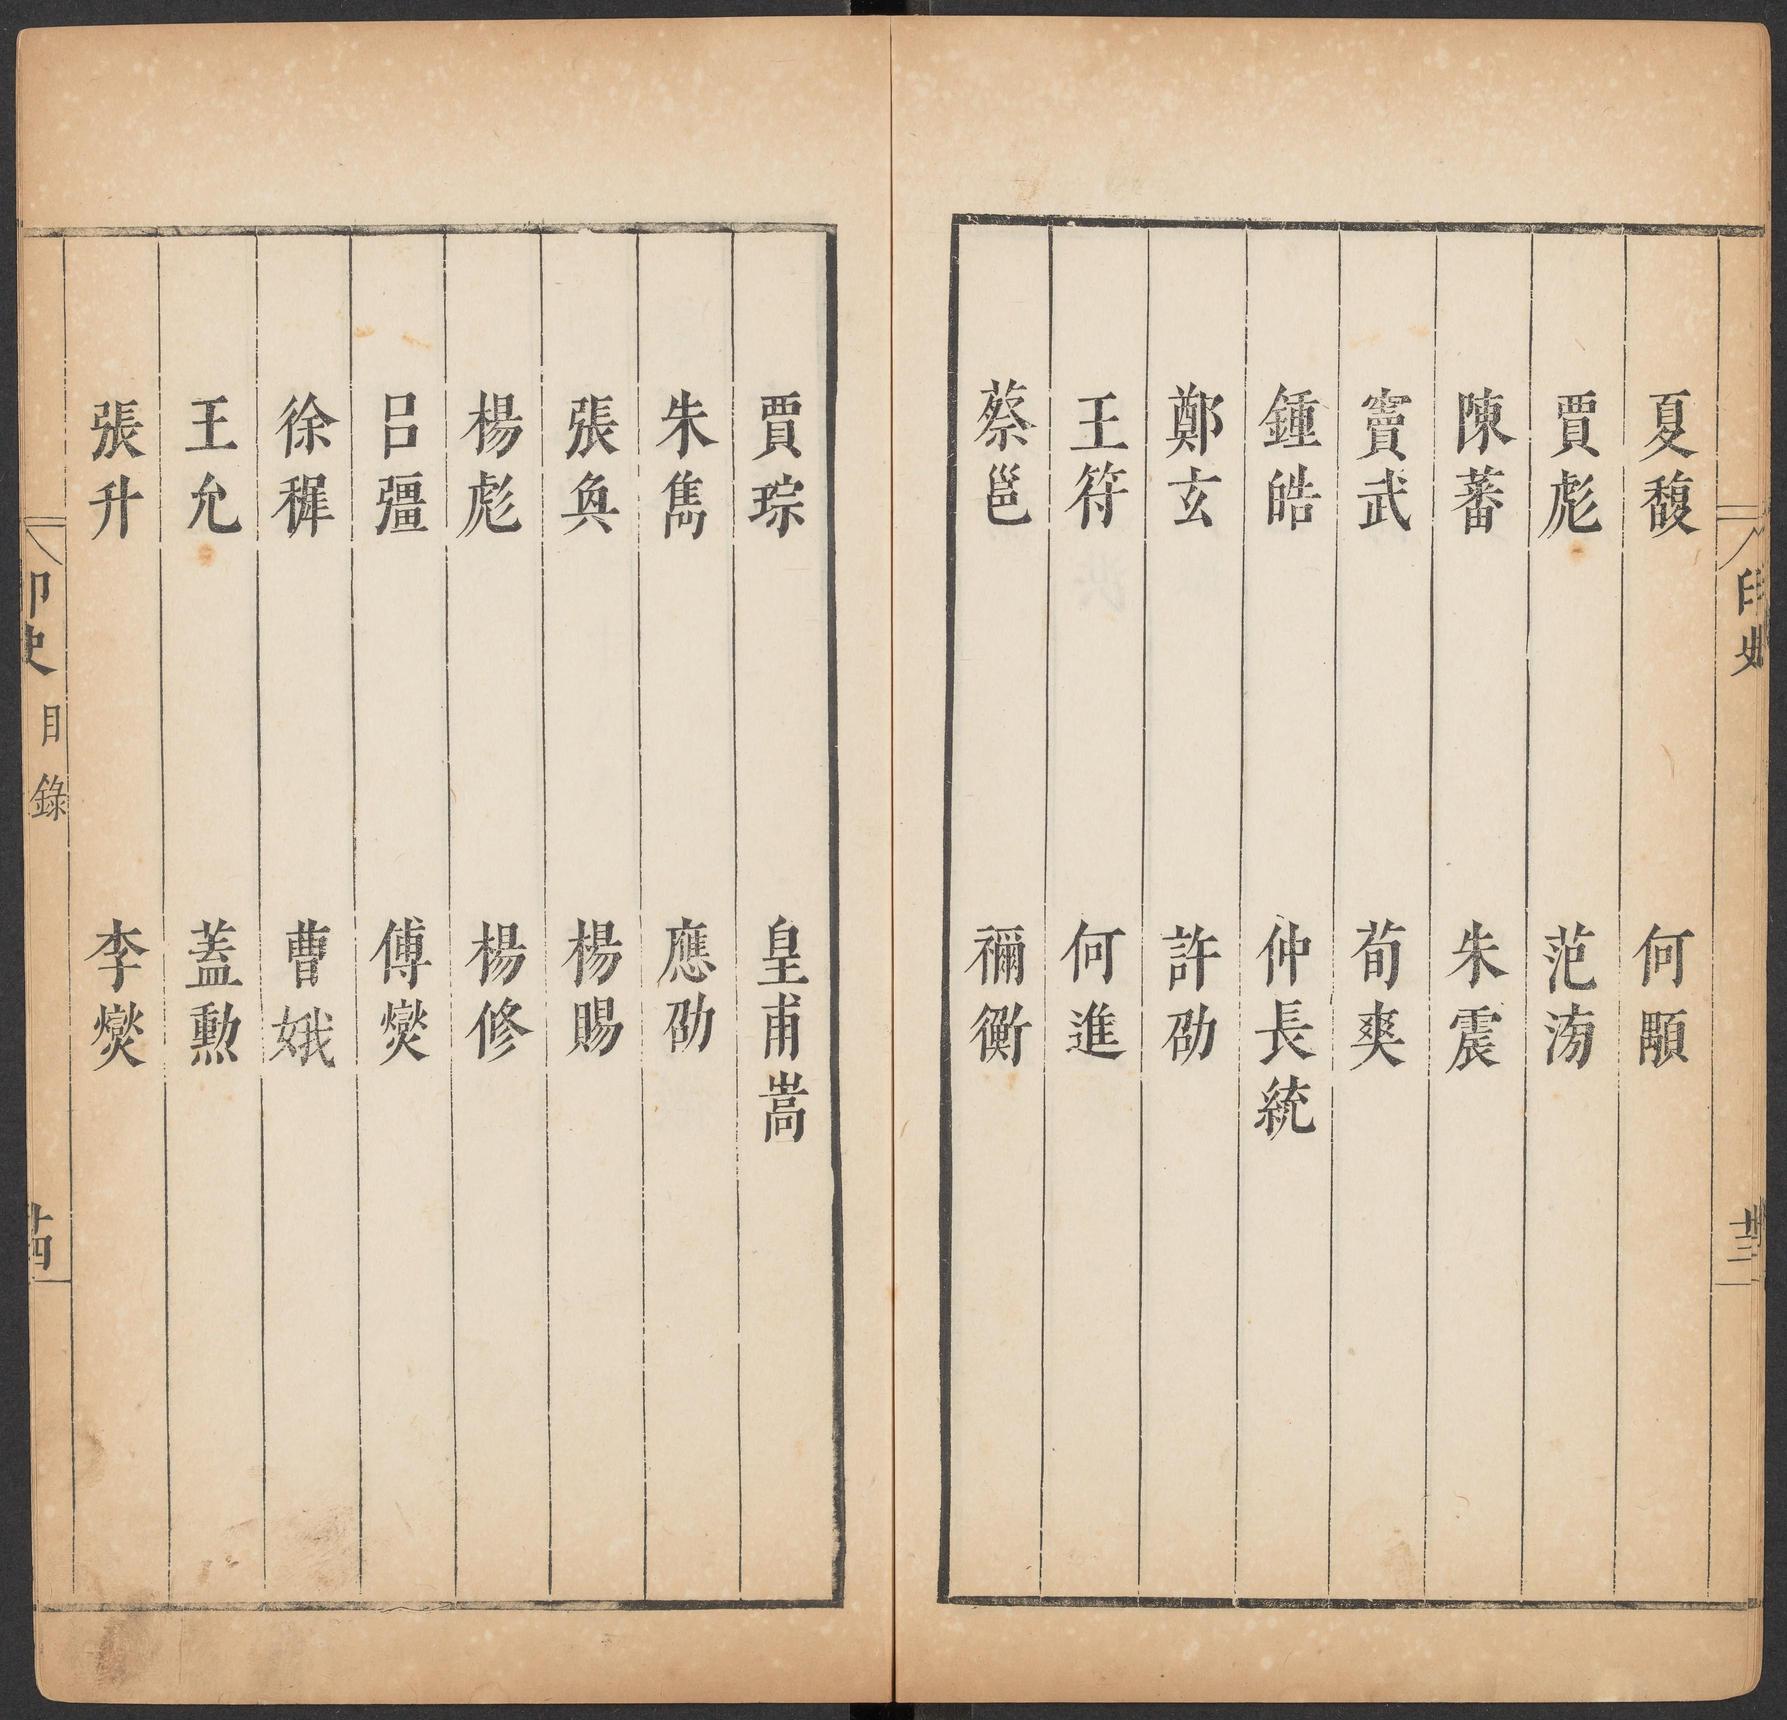 夏馥 何顒
賈彪 范滂
陳蕃 朱震
竇武 荀爽
鍾皓 仲長統
鄭玄 許劭
王符 何進
蔡邕 禰衡
賈琮 皇甫嵩
朱雋 應劭
張奐 楊賜
楊彪 楊修
呂彊 傅燮
徐穉 曹娥
王允 蓋勳
張升 李燮
印史 目錄 廿四